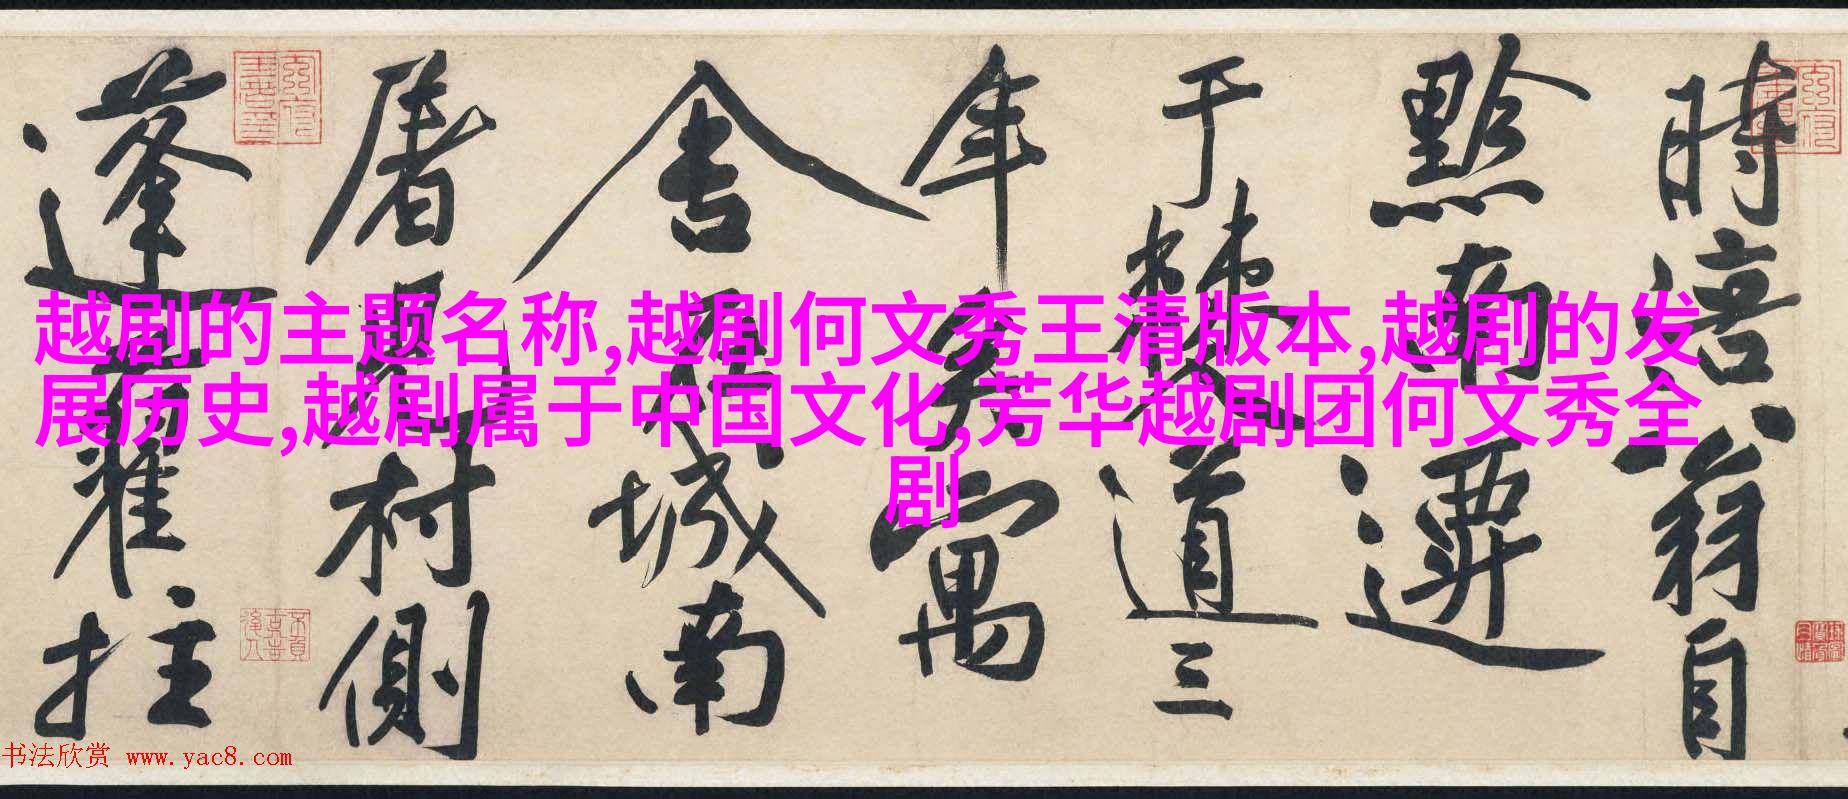 越剧的主题名称,越剧何文秀王清版本,越剧的发
展历史,越剧属于中国文化,芳华越剧团何文秀全
剧
時涪翁自
黔南遷
于僰道三
年矣寓
舍在城南
屠兒村側
蓬藋拄
书法欣赏 www.yac8.com